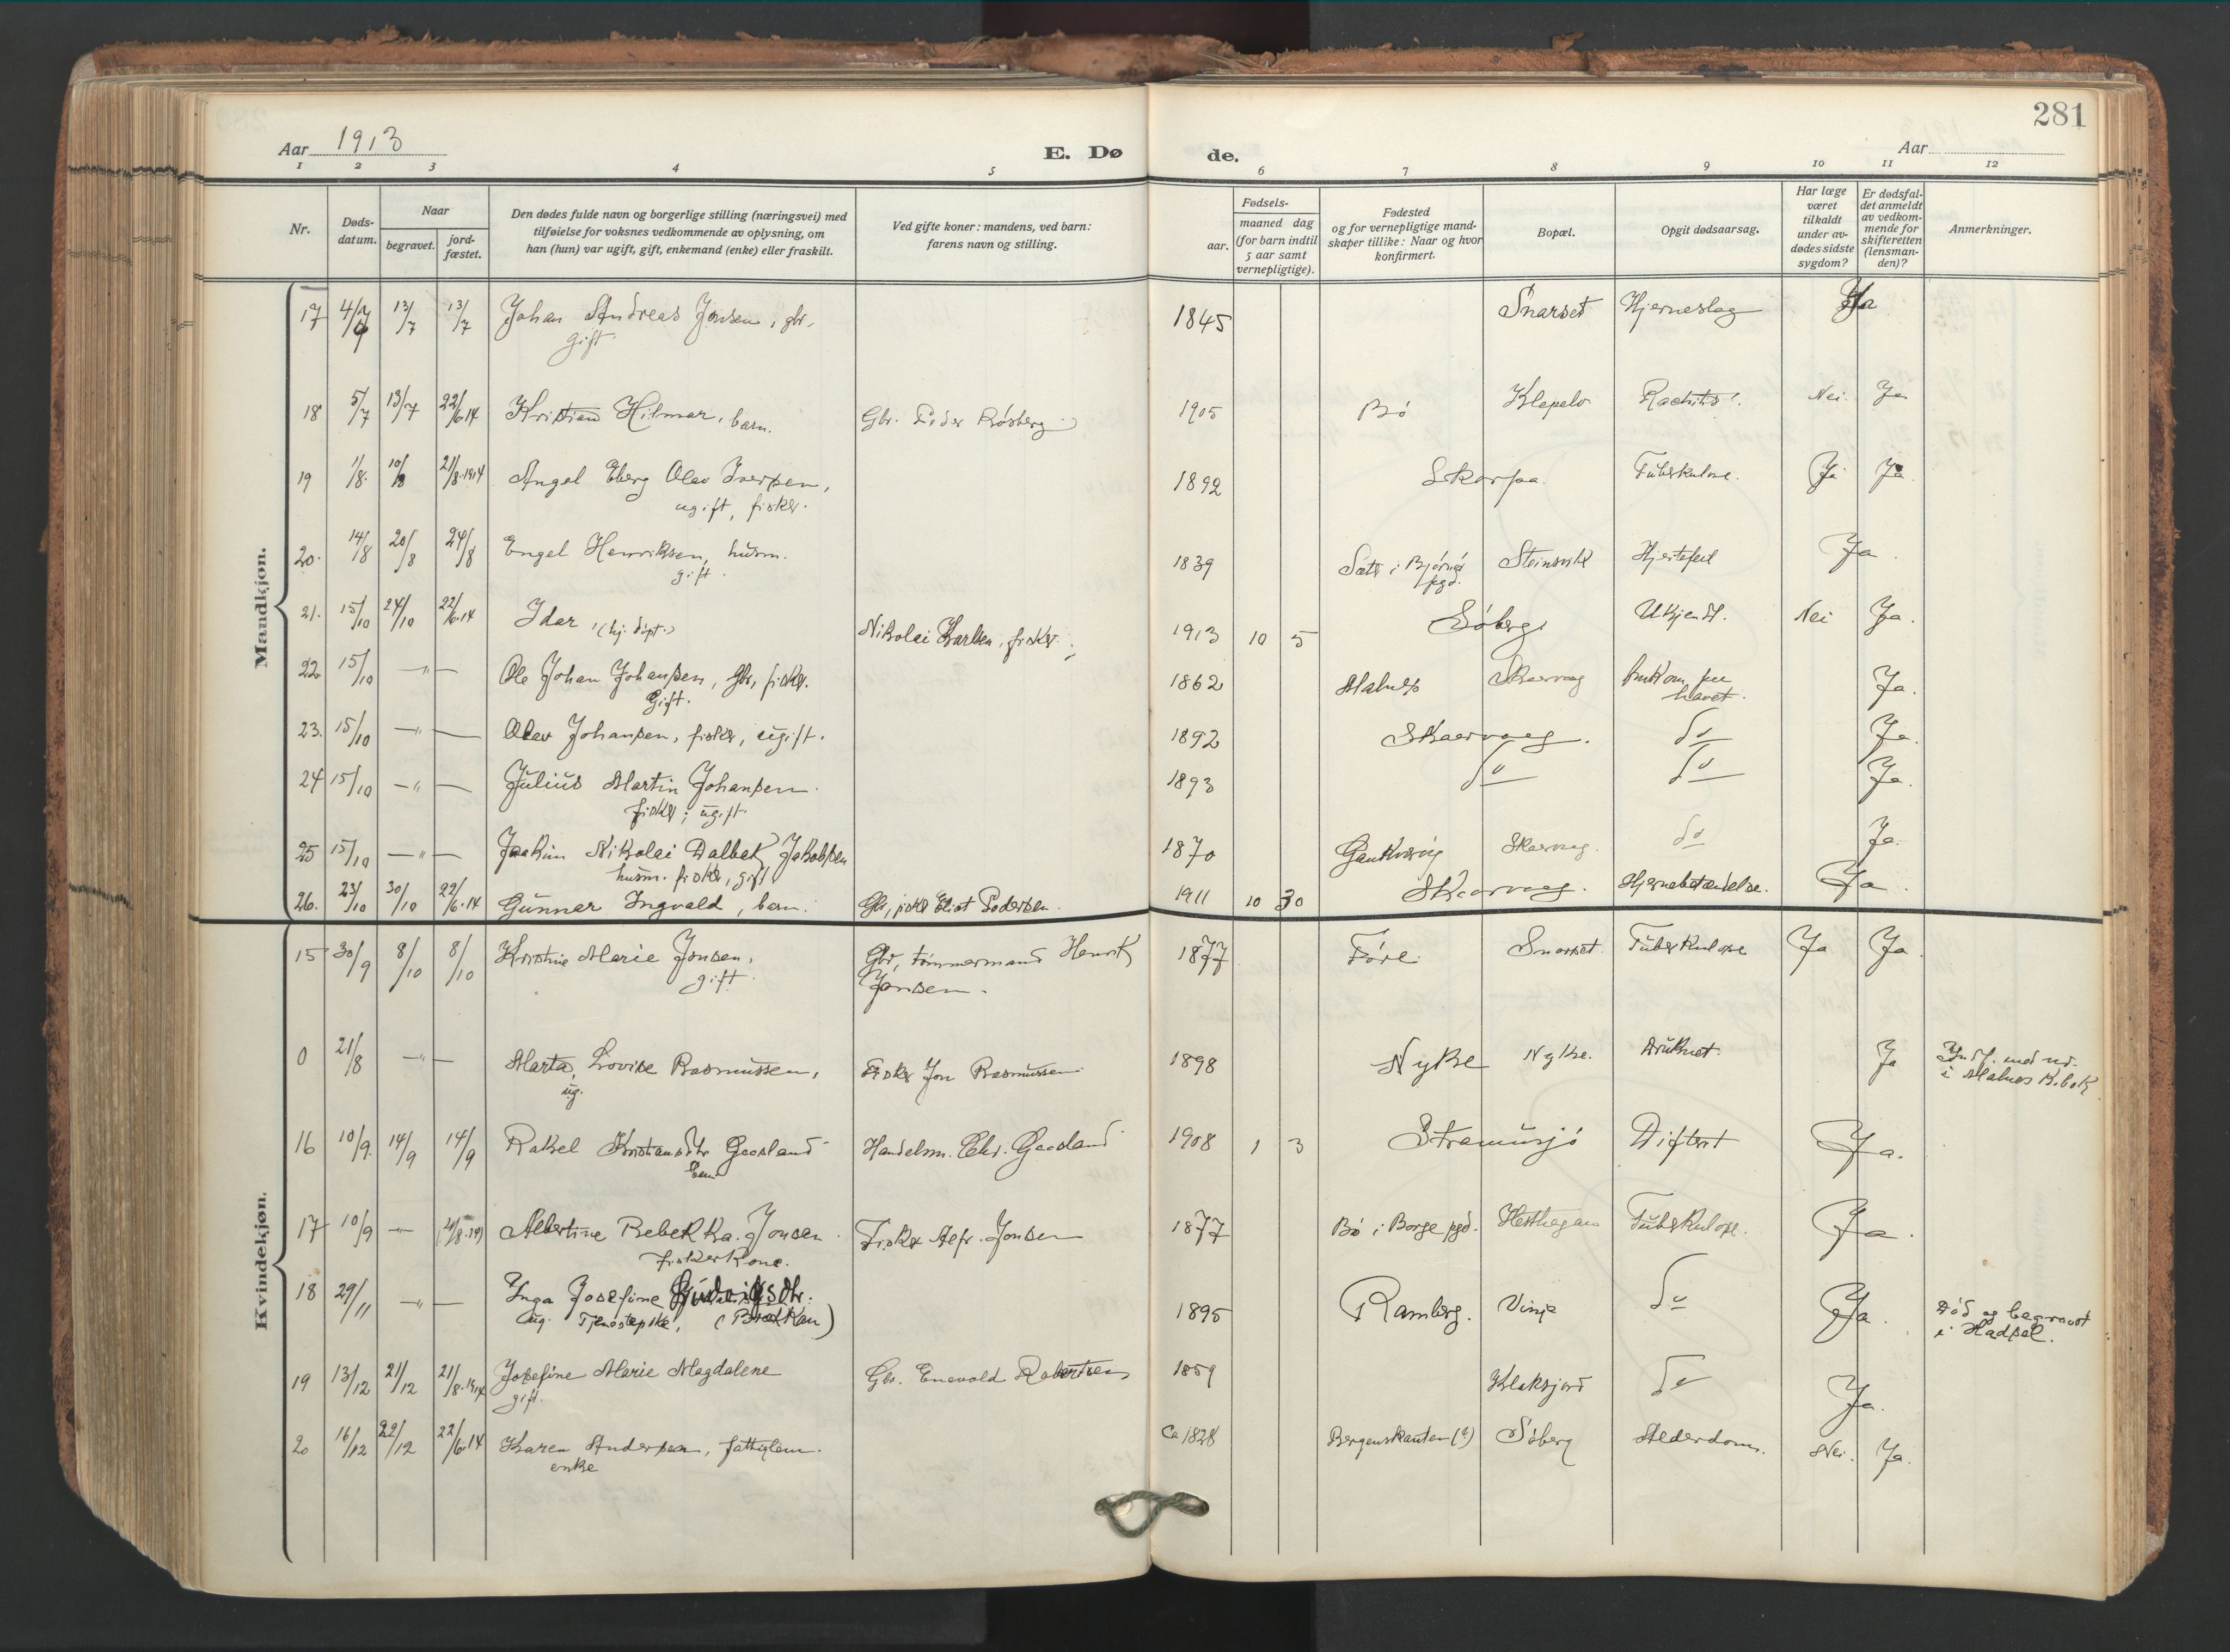 281
Aar 1913
E. Dø
de.
Aar
1 2 3 4 5 6 7 8 9 10 11 12
Nr.
Døds-
datum.
Naar
begravet.
jord-
fæstet.
Den dødes fulde navn og borgerlige stilling (næringsvei) med
tilføielse for voksnes vedkommende av oplysning, om
han (hun) var ugift, gift, enkemand (enke) eller fraskilt.
Ved gifte koner: mandens, ved barn:
farens navn og stilling.
Fødsels-
aar.
maaned dag
(for barn indtil
5 aar samt
vernepligtige).
Fødested
og for vernepligtige mand-
skaper tillike: Naar og hvor
konfirmert.
Bopæl.
Opgit dødsaarsag.
Har læge
været
tilkaldt
under av-
dødes sidste
sygdom?
Er dødsfal-
det anmeldt
av vedkom-
mende for
skifteretten
(lensman-
den)?
Anmerkninger.
Mandkjøn.
17 13/7 13/7 Johan Andreas Jonsen, gbr. 1845 Snarset Hjerneslag Ja
gift
18 5/7 13/7 22/6.14 Kristian Hilmar, barn. Gbr. Peder Røsberg 1905 Bø Klepelv Rachitis. Nei. Ja
19 1/8 10/8 21/8.1914 Angel Eberg Olav Iversen, 1892 Skarpa. Tuberkulose. Ja Ja
ugift, fisker.
20. 14/8 20/8 24/8 Engel Henriksen, husm. 1839 i Bjørnør Steinsvik Hjertefeil Ja.
gift. pgd.
21. 15/10 24/10 22/6.14 Idar, (hj. døpt.) Nikolai Karlsen, fisker. 1913 10 5 Søberg Ukjendt. Nei Ja.
22 15/10 —"— Ole Johan Johansen, gbr, fisker. 1862 Malnes Skaarvaag Omkom paa Ja.
Gift. havet.
23. 15/10 —"— Olav Johansen, fisker, ugift. 1892 Skaarvaag. Do Ja.
24 15/10 —"— Julius Martin Johansen. 1893 Do Do Ja.
fisker, ugift
25 15/10 —"— Joakim Nikolai Dalbak Jakobsen 1870 Skaarvaag. Do Ja.
husm. fisker, gift.
26. 23/10 30/10 22/6.14 Gunnar Ingvald, barn. Gbr, fisker Eliot Pedersen. 1911 10 30 Skaarvaag. Hjernebetændelse. Ja.
Kvindekjøn.
15 30/9 8/10 8/10 Kristine Marie Jonsen, Gbr, tømmermand Henrik 1877 Føre. Snarset. Tuberkulose Ja Ja.
gift. Jonsen.
0 21/8 —"— Marta Lovise Rasmussen, Fisker Jon Rasmussen 1898 Nykse Nykse. Druknet. Ja Indf. med nr.
ug. i Malnes K.bok
16 10/9. 14/9 14/9 Rakel Kristiansdtr Gaasland Handelsm. Chr. Gaasland 1908 1 3 Straumsjø Difterit Ja.
barn
17 10/9 —"— (21/8.14) Albertine Rebekka Jonsen Fisker Alfr. Jonsen 1877 Bø i Borge pgd. Tuberkulose. Ja.
fiskerkone.
18 29/11 —"— Inga Josefine Ludvigsdtr. 1895 Ramberg. Vinje Do Ja. Død og begravet
ug. Tjenestepike, (Brækkan) i Hadsel.
19 13/12 21/12 21/8.1914 Josefine Marie Magdalene Gbr. Enevold Robertsen 1859 Klaksjord Do Ja.
gift.
20 16/12 22/12 22/6.14 Karen Andersen, fattiglem. ca 1828 Bergenskanten (?) Søberg Alderdom. Nei. Ja.
enke